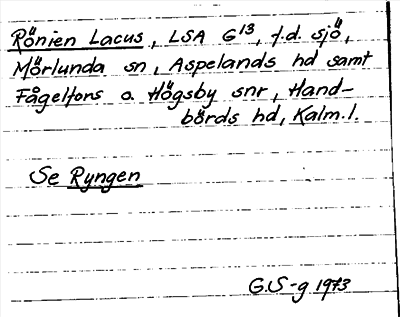 Rönien Lacus, LSA G13, f.d. sjö,
Mörlunda sn, Aspelands hd samt
Fågelfors o. Högsby snr, Hand-
börds hd, Kalm.l.
Se Ryngen
G.S-g 1973